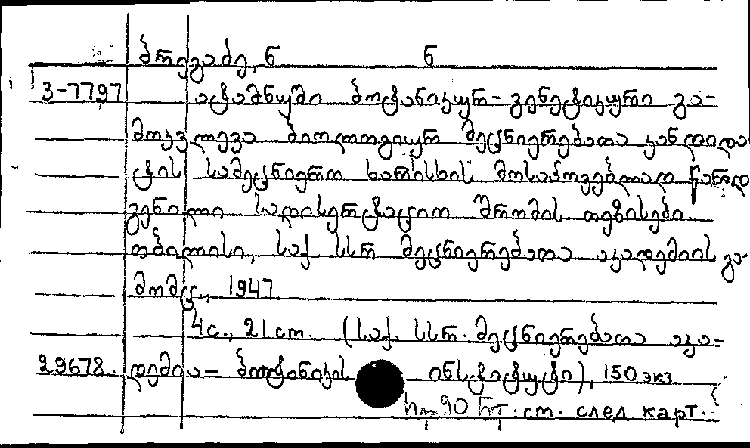 ბრეგაძე, ნ ნ
3-7797 ატამნუმი ბოტანიკურ-გენეტიკური გა-
მოკვლევა ბიოლოგიურ მეცნიერებათა კანდიდა
ტის სამეცნიერო ხარისხის მოსაპოვებლად წარდ
გენილი სადისერტაციო შრომის თეზისები
თბილისი, საქ. სსრ მეცნიერებათა აკადემიის გა
მომც., 1947.
4с., 21 ст. (საქ. სსრ. მეცნიერებათა აკა-
29678. დემია- ბოტანიკის ინსტიტუტი), 150 экз
90 ст. след карт.